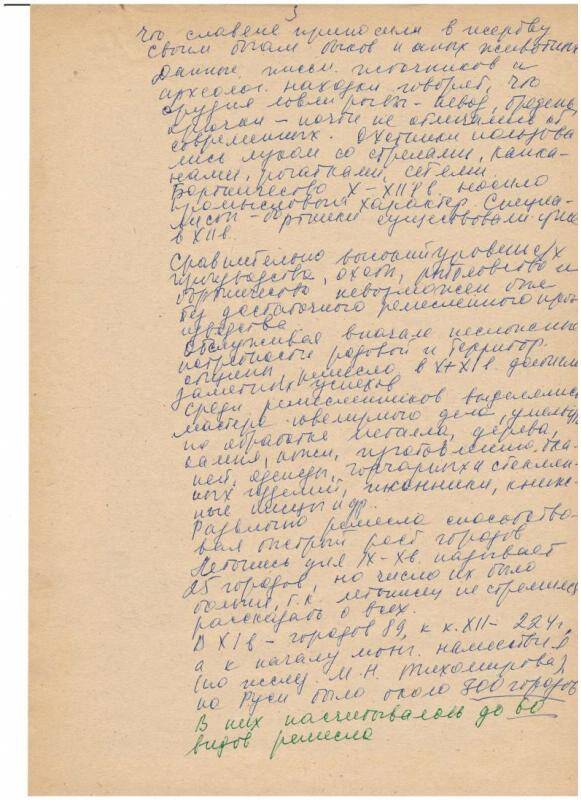 3
что славяне приносили в жертву
своим богам быков и иных животных
Данные письм. источников и
археолог. находки говорят, что
орудия ловли рыбы - невод, бредень,
крючки - почти не отличались от
современных. Охотники пользова
лись луком со стрелами, капка-
нами, рогатками, сетями.
Бортничество X-XIII в. носило
промысловый характер. Специа-
листы-бортники существовали уже
в XII в.
Сравнительно высокий уровень с/х
производства, охоты, рыболовства и
бортничества невозможен был
без достаточного ремесленного произ
водства.
Обслуживая вначале несложные
потребности родовой и территор.
общины, ремесло в X-XI в. достигло
заметных успехов
Среди ремесленников выделялись
мастера ювелирного дела, умельцы
по обработке металла, дерева,
камня, кожи, изготовлению тка
ней, одежды, гончарных и стеклян-
ных изделий, иконники, книж-
ные писцы и др.
Развитию ремесла способство-
вал быстрый рост городов
Летопись для IX-X в. называет
25 городов, но число их было
больше, т.к. летописец не стремился
рассказать о всех.
В XI в - городов 89, к к. XII - 224,
а к началу монг. нашествия
(по исслед. М.Н. Тихомирова)
на Руси было около 300 городов
В них насчитывалось до 60
видов ремесла